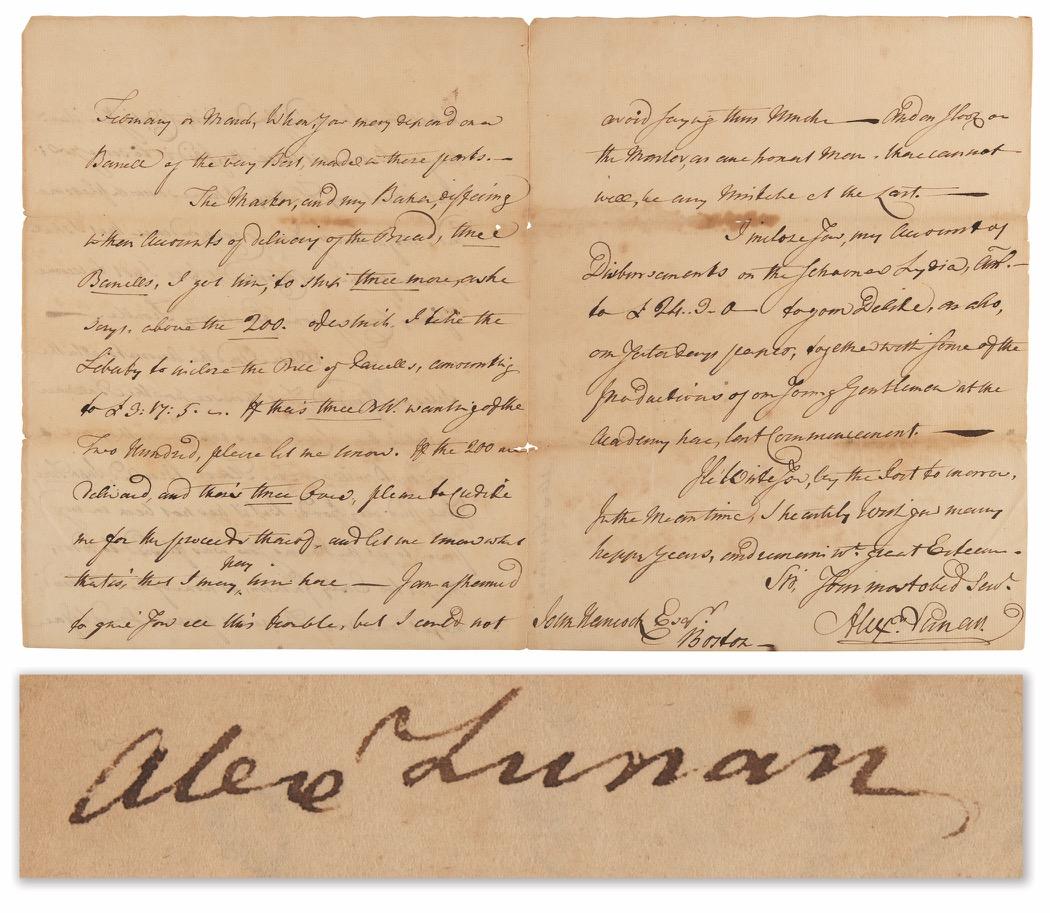 February or March, When, You may depend on a
Barell of the very Best, made in these parts.—
The Master, and my Baker, differing
in their Accounts of delivery of the Bread, three
Barells, I got him, to ship three more, as he
says, above the 200. of which I take the
Liberty to inclose the Bill of Parcells, amounting
to £3:17:5. If theis three B. wanting of the
Two Hundred, please let me know. If the 200 are
delivered, and theis three Over, please to Credite
me for the proceeds thereof, and let me know what
that is, that I may pay him here — I am ashamed
to give You all this trouble, but I could not
avoid saying thus Much — And on floor or
the Master, as are honest Men. there cannot
well, be any Mistake at the Last. —
I inclose You, my Account of
Disbursements on the Schooner Lydia, Amt.—
to £24..3..0 — to your Debite, as also,
our Yesterdays papers, together with some of the
productions of our Young Gentlemen at the
Academy here, last Commencement. —
I'le Write You, by the Post to morrow,
In the Mean time, I heartily Wish you many
happy Years, and remain wt. great Esteem.
Sir, Your most obed Servt.
John Hancock Esqr. Alexr. Lunan.
Boston —
Alexr Lunan